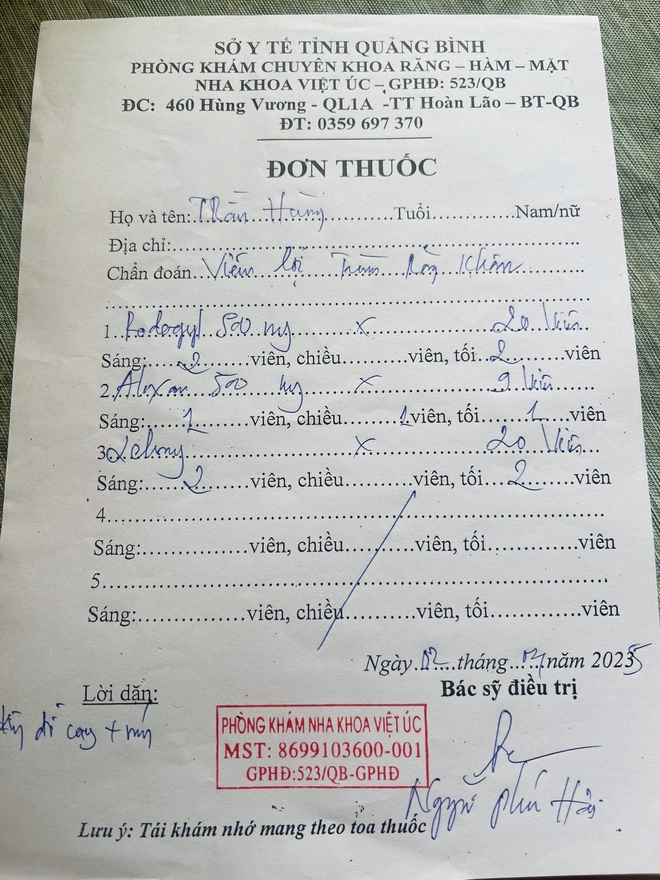 SỞ Y TẾ TỈNH QUẢNG BÌNH
PHÒNG KHÁM CHUYÊN KHOA RĂNG – HÀM – MẶT
NHA KHOA VIỆT ÚC – GPHĐ: 523/QB
ĐC: 460 Hùng Vương - QL1A -TT Hoàn Lão – BT-QB
ĐT: 0359 697 370
ĐƠN THUỐC
Họ và tên: Trần Hùng Tuổi Nam/nữ
Địa chỉ:
Chẩn đoán Viêm lợi Trùm Răng Khôn
1. Rodogyl 500 mg x 20 Viên
Sáng: 2 viên, chiều viên, tối 2 viên
2. Aloxan 500 mg x 9 Viên
Sáng: 1 viên, chiều 1 viên, tối 1 viên
3 x 20 Viên
Sáng: 2 viên, chiều viên, tối 2 viên
4
Sáng: viên, chiều viên, tối viên
5
Sáng: viên, chiều viên, tối viên
Ngày 02 tháng năm 2025
Lời dặn: Bác sỹ điều trị
đồ cay +
PHÒNG KHÁM NHA KHOA VIỆT ÚC
MST: 8699103600-001
GPHĐ:523/QB-GPHĐ
Nguyễn phú Hải
Lưu ý: Tái khám nhớ mang theo toa thuốc